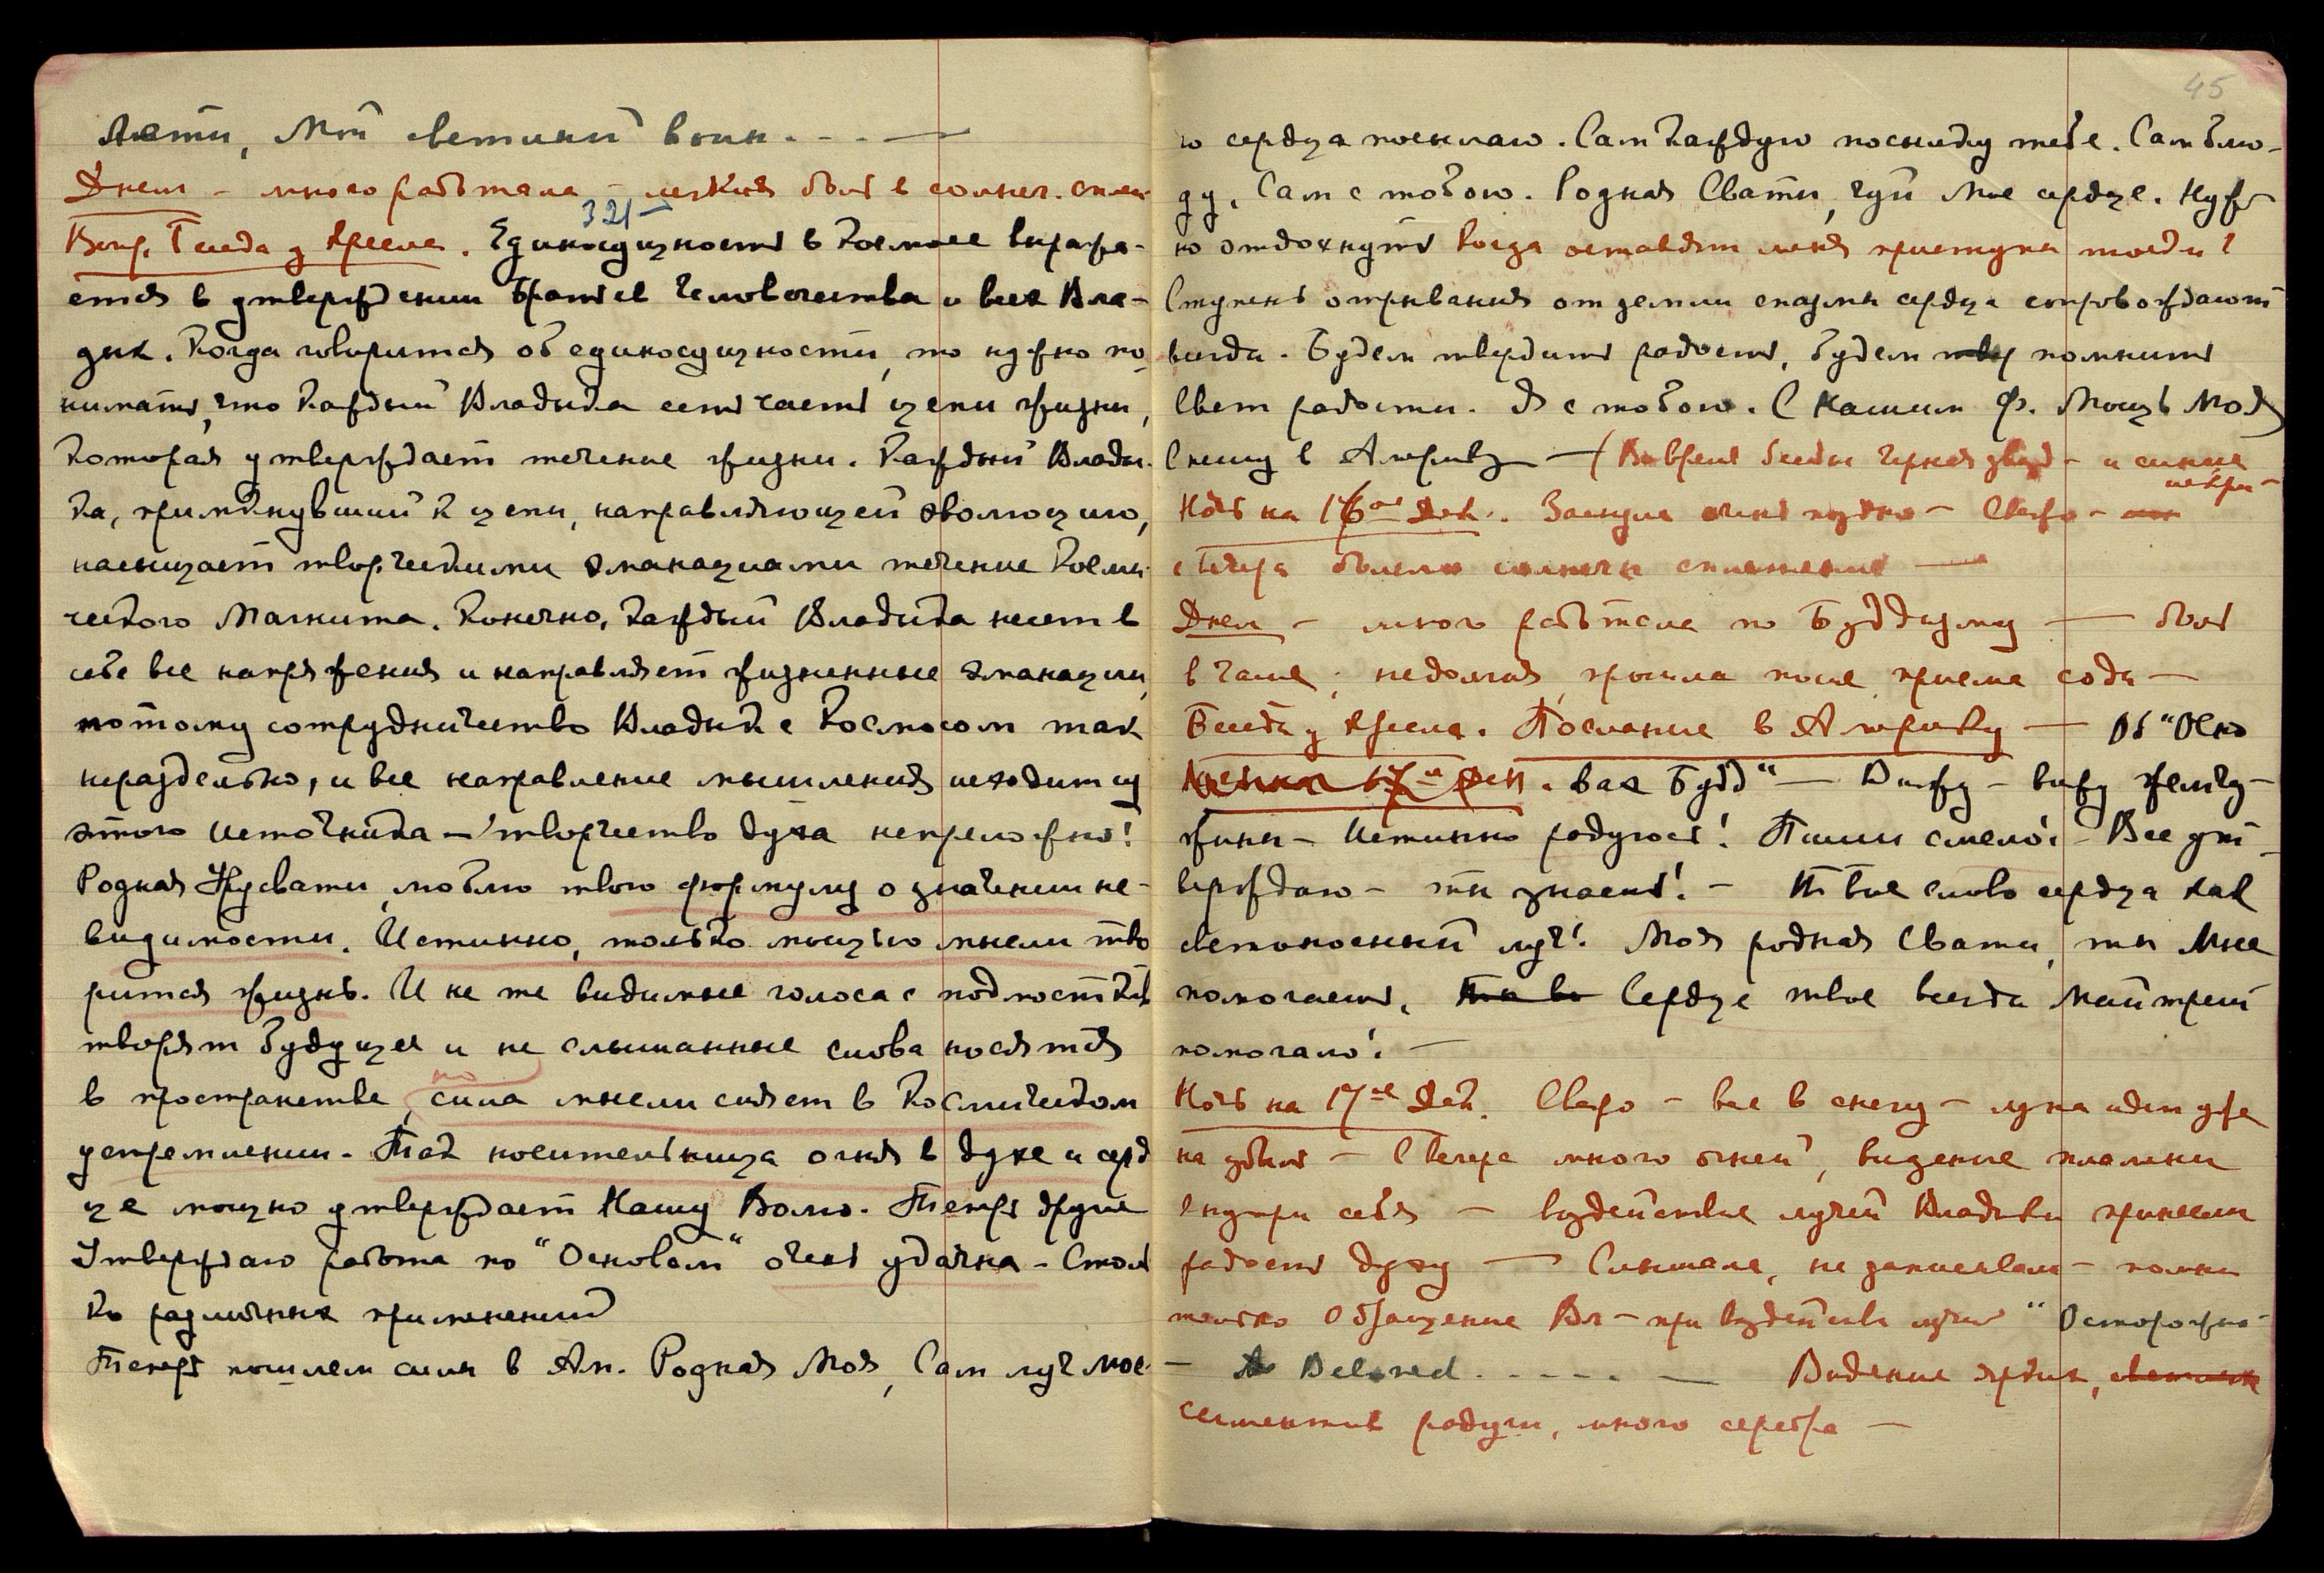 Мой светлый воин. - - —
Днем – много работала – легкая боль в солнеч. сплет.
321 –
Веч. Беседа у кресла. Единосущность в Космосе выража-
ется в утверждении Братьев Человечества и всех Вла-
дык. Когда говорится об единосущности, то нужно по-
нимать, что каждый Владыка есть часть цепи жизни,
которая утверждает течение жизни. Каждый Влады-
ка, примкнувший к цепи, направляющей эволюцию,
насыщает творческими эманациями течение Косми-
ческого Магнита. Конечно, каждый Владыка несет в
себе все напряжения и направляет жизненные эманации,
потому сотрудничество Владык с Космосом так
нераздельно, и все направление мышления исходит из
этого источника – творчество духа непреложно!
Родная Урусвати, люблю твою формулу о значении не-
видимости. Истинно, только мощью мысли тво
рится жизнь. И не те видимые голоса с подмостков
творят будущее и не слышанные слова носятся
но
в пространстве, сила мысли сияет в Космическом
устремлении. Так носительница огня в духе и серд
це мощно утверждает Нашу Волю. Теперь другое
Утверждаю работа по "Основам" очень удачна – Столь
ко различных применений
Теперь пошлем силы в Ам. Родная Моя, Сам луч Мое-
45
го сердца посылаю. Сам каждую посылку тебе. Сам блю-
ду, Сам с тобою. Родная Свати, чуй Мое сердце. Нуж
но отдохнуть Когда оставят меня приступы тоски?
Ступень отрывания от земли спазмы сердца сопровождают
всегда. Будем твердить радость, будем помнить
Свет радости. Я с тобою. С Нашим Ф. Мощь Моя
Спешу в Америку — (Во время беседы черная звезда – и синие
искры –
Ночь на 16ое Дек. Заснула очень поздно – Свежо –
с вечера болело солнечн сплетение —
Днем – много работала по Буддизму — боль
в чаше, недолгая, прошла после приема соды —
Беседа у кресла. Послание в Америку — Об "Осно
вах Будд" — Вижу – вижу жемчу-
жины – Истинно радуюсь! Пиши смело! – Все ут-
верждаю – ты знаешь! – Твое слово сердца как
светоносный луч! Моя родная Свати, ты Мне
помогаешь. Сердце твое всегда Майтрейе
помогало! —
Ночь на 17ое Дек. Свежо – все в снегу – луна идет уже
на убыль – С вечера много огней, видение пламени
внутри себя – воздействие лучей Владыки принесли
радость духу — Слышала, не записывала – помню
только Обращение Вл – при воздействии лучей " Осторожно –
– Beloved. - - - - - — Видение ярких,
сегментов радуги, много серебра —